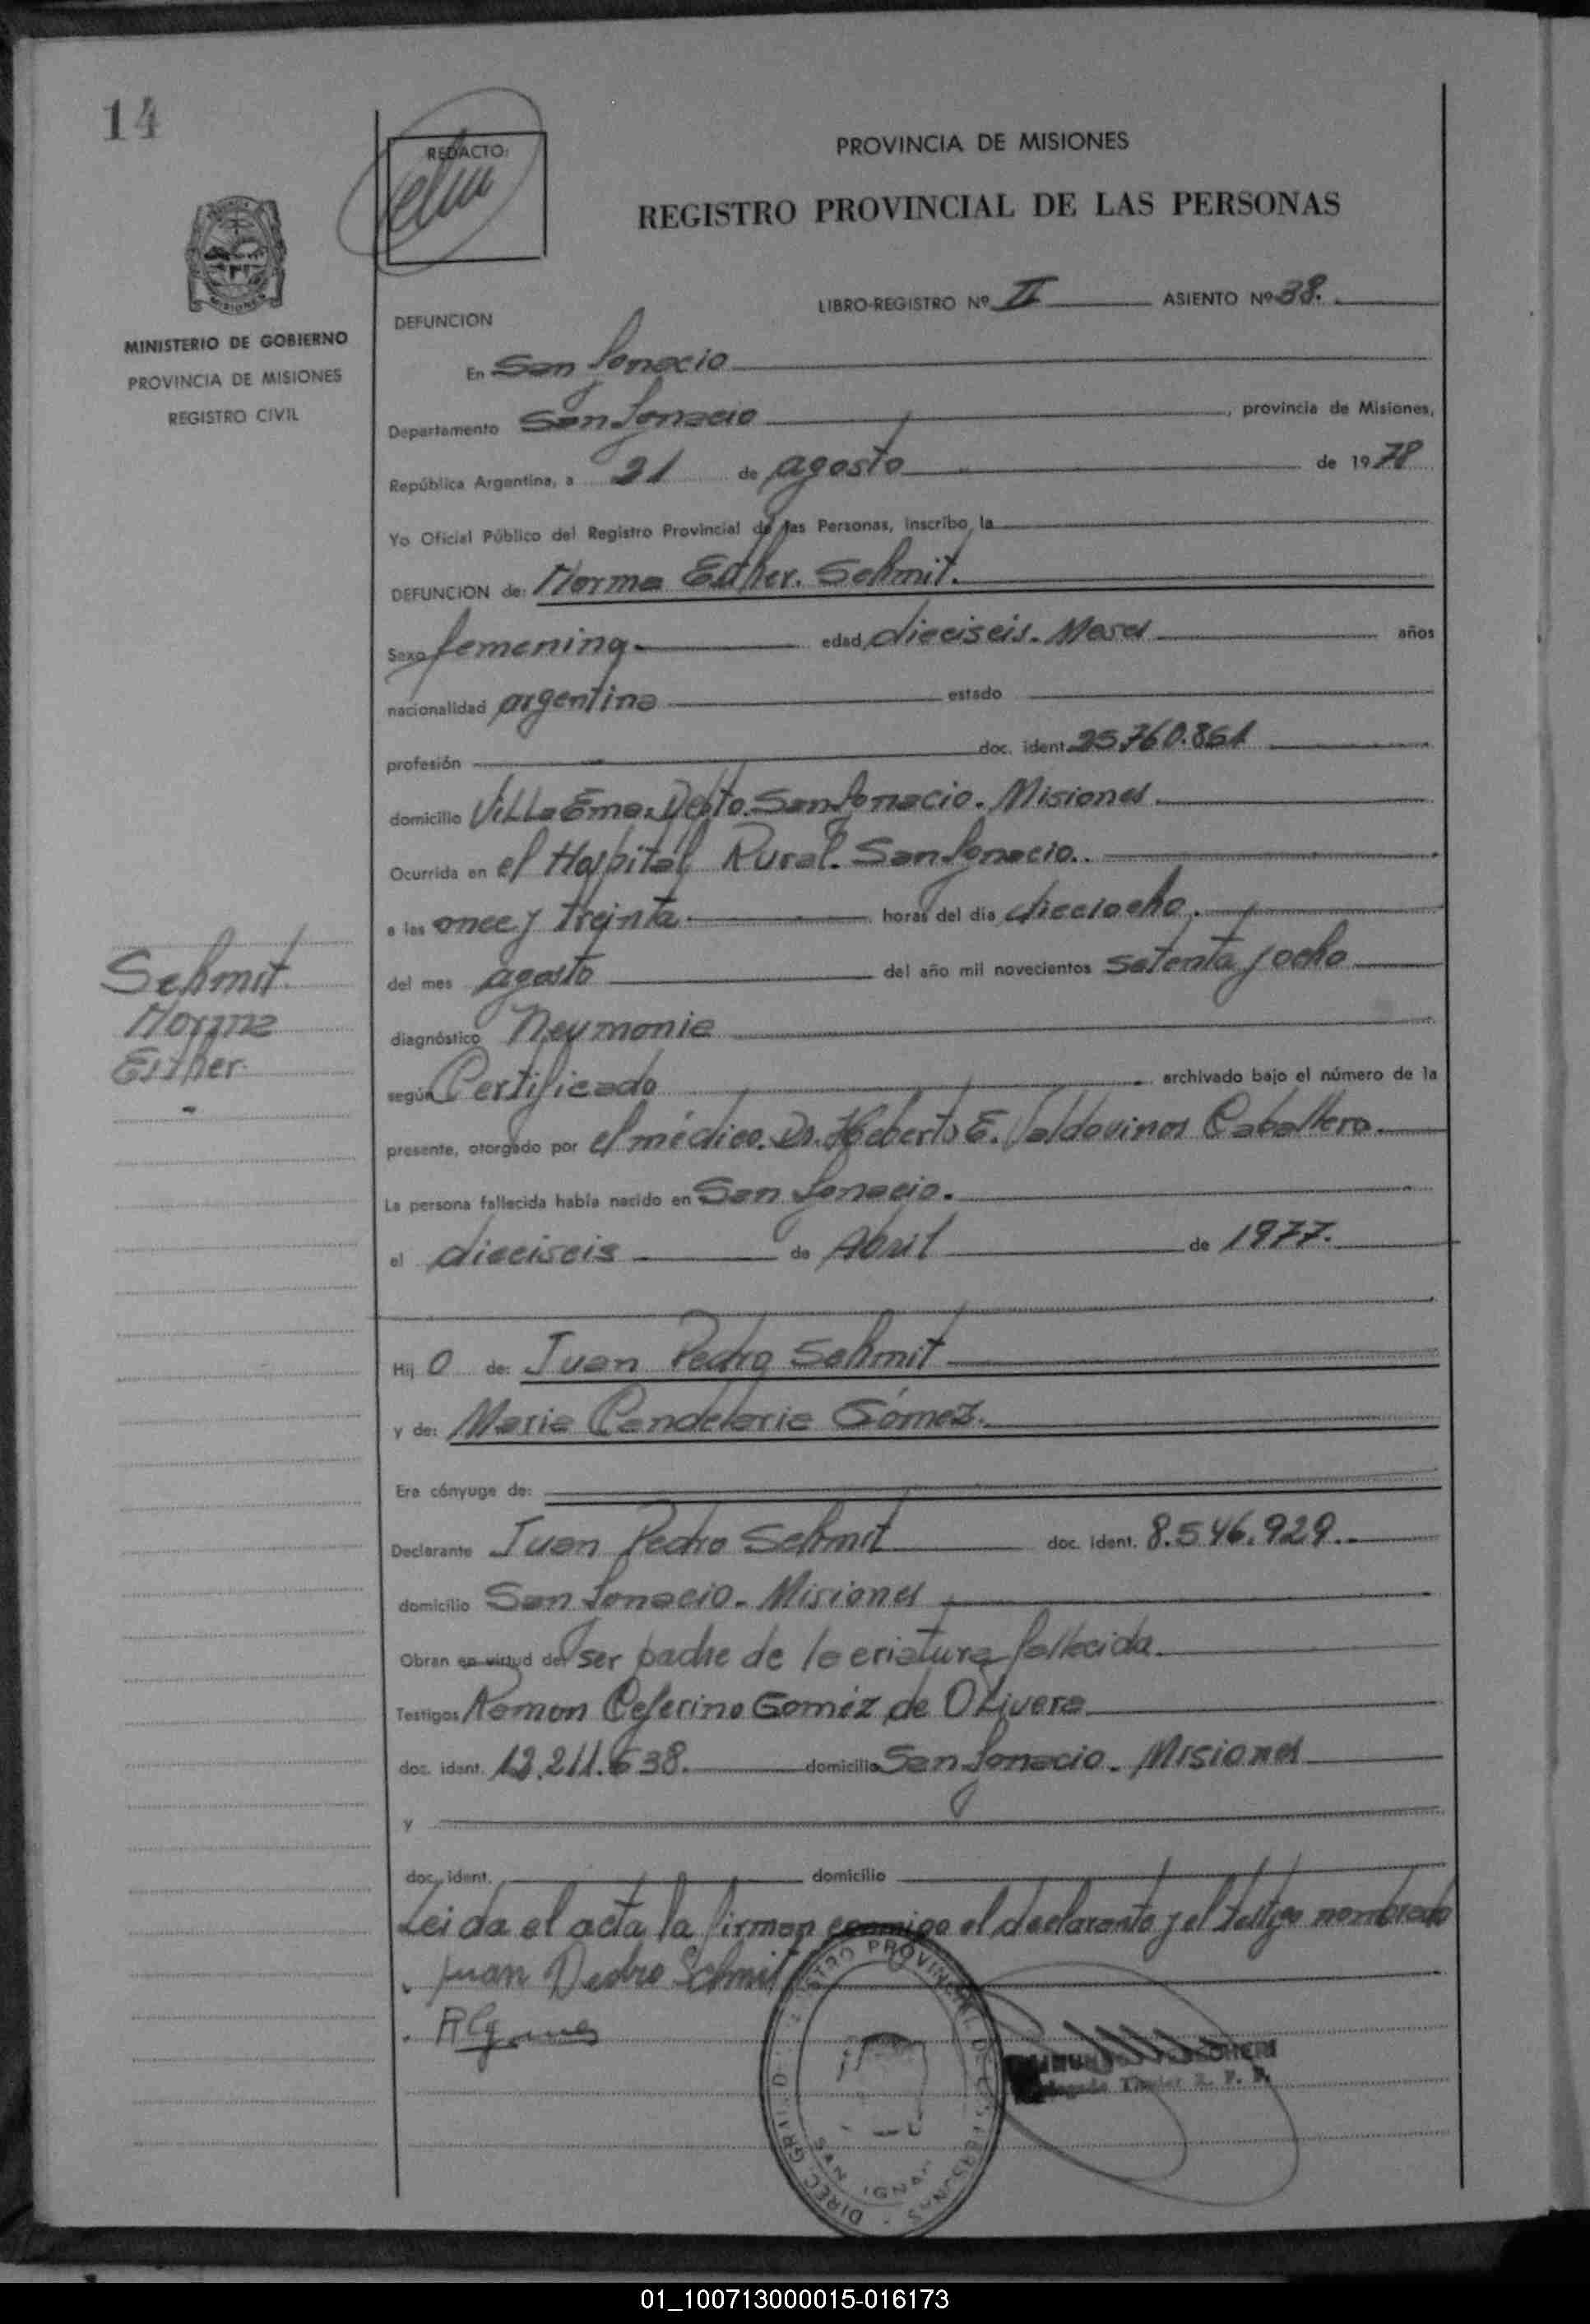 14
REDACTO:
PROVINCIA DE MISIONES
REGISTRO PROVINCIAL DE LAS PERSONAS
MISIONES
MINISTERIO DE GOBIERNO
PROVINCIA DE MISIONES
REGISTRO CIVIL
LIBRO-REGISTRO Nº II ASIENTO Nº 38.
DEFUNCION
En San Ignacio
Departamento San Ignacio, provincia de Misiones,
República Argentina, a 21 de agosto de 1978
Yo Oficial Público del Registro Provincial de las Personas, inscribo la
DEFUNCION de: Norma Esther. Schmit.
Sexo femenino edad dieciseis. Meses años
nacionalidad argentina estado
profesión doc. ident. 25.760.861
domicilio Villa Ema. Depto. San Ignacio. Misiones.
Ocurrida en el Hospital Rural. San Ignacio.
a las once y treinta horas del día dieciocho.
del mes agosto del año mil novecientos setenta y ocho
diagnóstico Neumonia
según Certificado archivado bajo el número de la
presente, otorgado por el médico. Dr. Heberto E. Valdovinos Caballero.
La persona fallecida había nacido en San Ignacio.
el dieciseis de Abril de 1977.
Schmit.
Norma
Esther.
Hij o de: Juan Pedro Schmit
y de: Maria Candelaria Gómez.
Era cónyuge de:
Declarante Juan Pedro Schmit doc. ident. 8.546.929.
domicilio San Ignacio. Misiones
Obran en virtud de ser padre de la criatura fallecida.
Testigos Ramon Ceferino Goméz de Olivera
doc. ident. 12.211.638. domicilio San Ignacio. Misiones
y
doc. ident. domicilio
Leida el acta la firman conmigo el declarante y el testigo nombrado
Juan Pedro Schmit
REGISTRO PROVINCIAL DE LAS PERSONAS
DIREC. GRAL. D
SAN IGNA
Titular R. P. P.
01_100713000015-016173